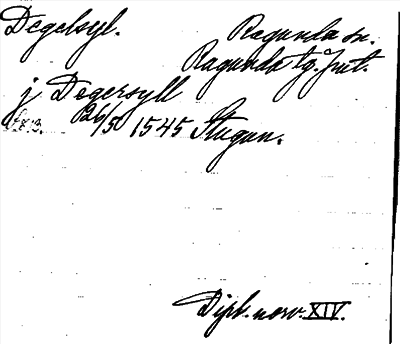 Degelsyl. Ragunda sn.
Ragunda tg. Jmt.
j Degersyll
26/5 1545 Stugun.
Dipl. norv. XIV.